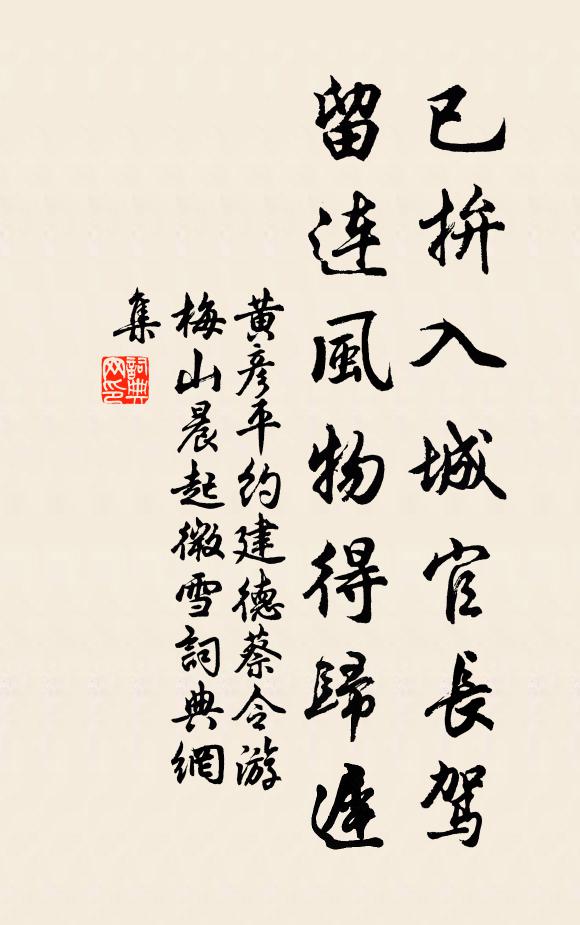 已拚入城官長駕
留連風物得歸遲
黄彦平約建德蔡令游
梅山晨起微雪詞典網
集
詞典
网印